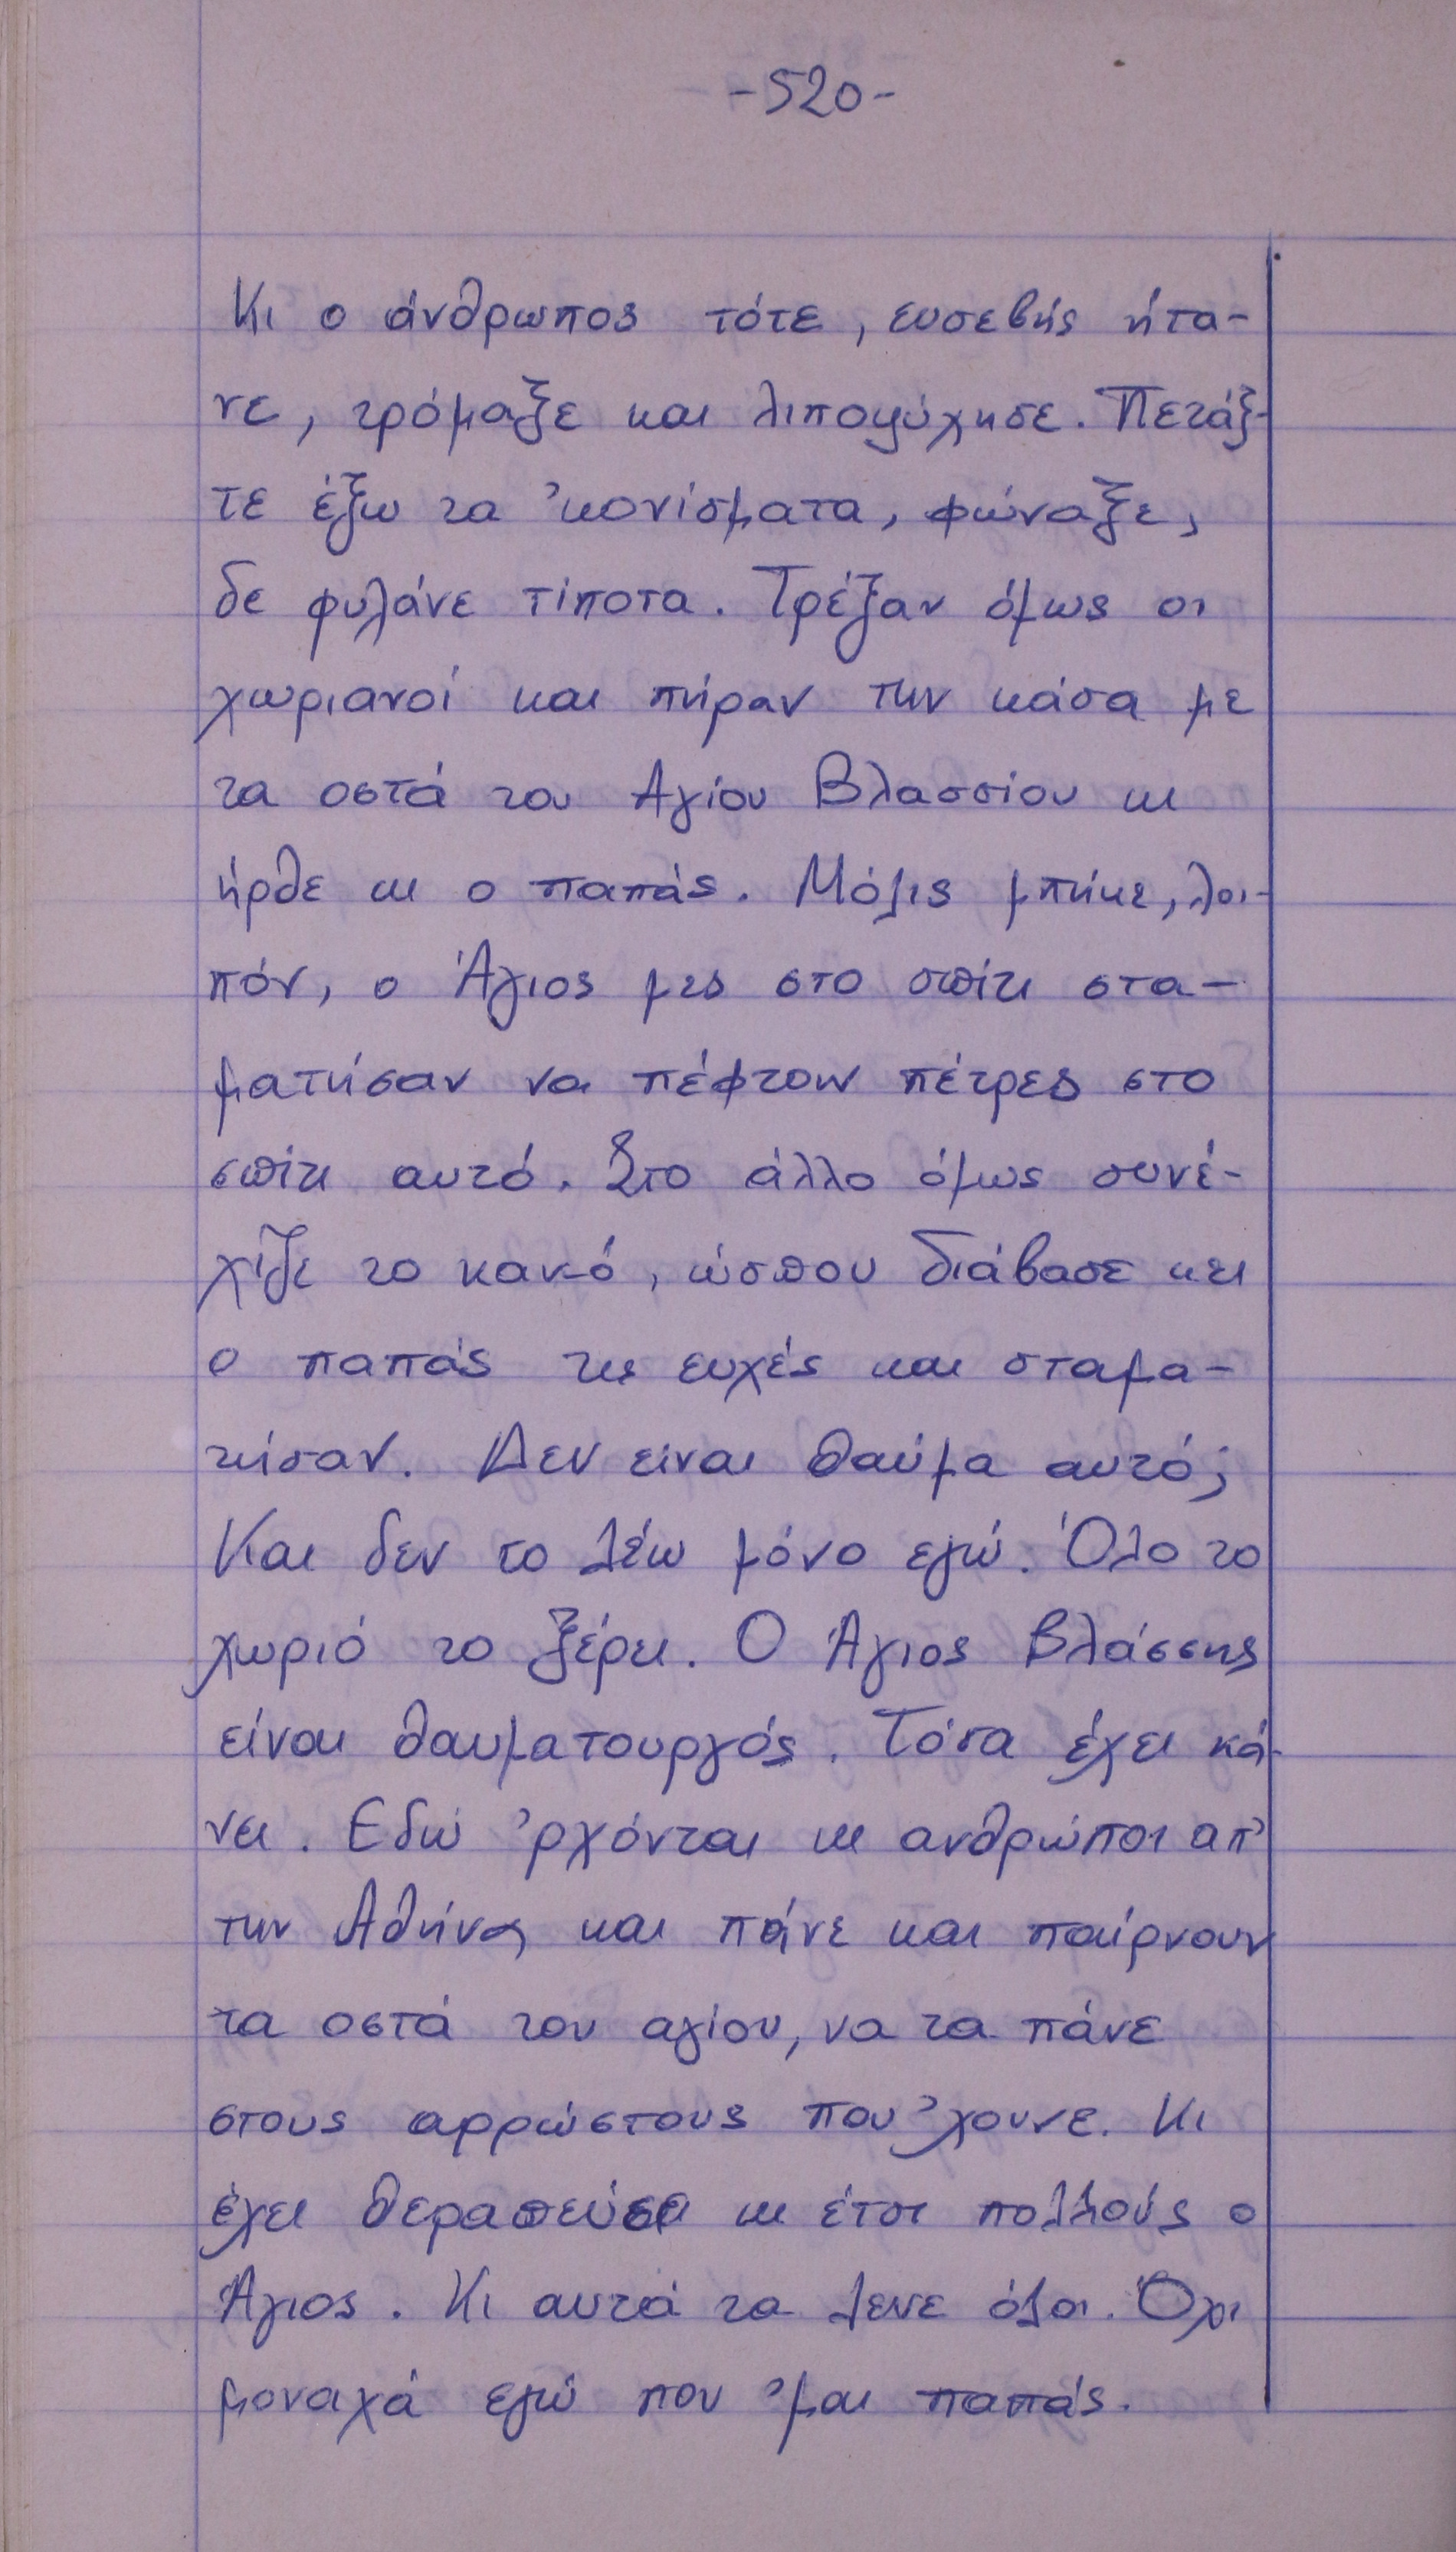 -520-
Κι ο άνθρωπος τότε, ευσεβής ήτα-
νε, τρόμαξε και λιποψύχησε. Πετάξ-
τε έξω τα 'κονίσματα, φώναξε,
δε φυλάνε τίποτα. Τρέξαν όμως οι
χωριανοί και πήραν την κάσα με
τα οστά του Αγίου Βλασσίου κι
ήρθε κι ο παπάς. Μόλις μπήκε, λοι-
πόν, ο Άγιος μες στο σπίτι στα-
ματήσαν να πέφτουν πέτρες στο
σπίτι αυτό. Στο άλλο όμως συνέ-
χιζε το κακό, ώσπου διάβασε κει
ο παπάς τις ευχές και σταμα-
τήσαν. Δεν είναι θαύμα αυτό;
Και δεν το λέω μόνο εγώ. Όλο το
χωριό το ξέρει. Ο Άγιος Βλάσσης
είναι θαυματουργός. Τόσα έχει κά-
νει. Εδώ 'ρχόνται κι ανθρώποι απ'
την Αθήνα και πάνε και παίρνουν
τα οστά του αγίου, να τα πάνε
στους αρρώστους που 'χουνε. Κι
έχει θεραπεύσει κι έτσι πολλούς ο
Άγιος. Κι αυτά τα λενε όλοι. Όχι
μοναχά εγώ που 'μαι παπάς.